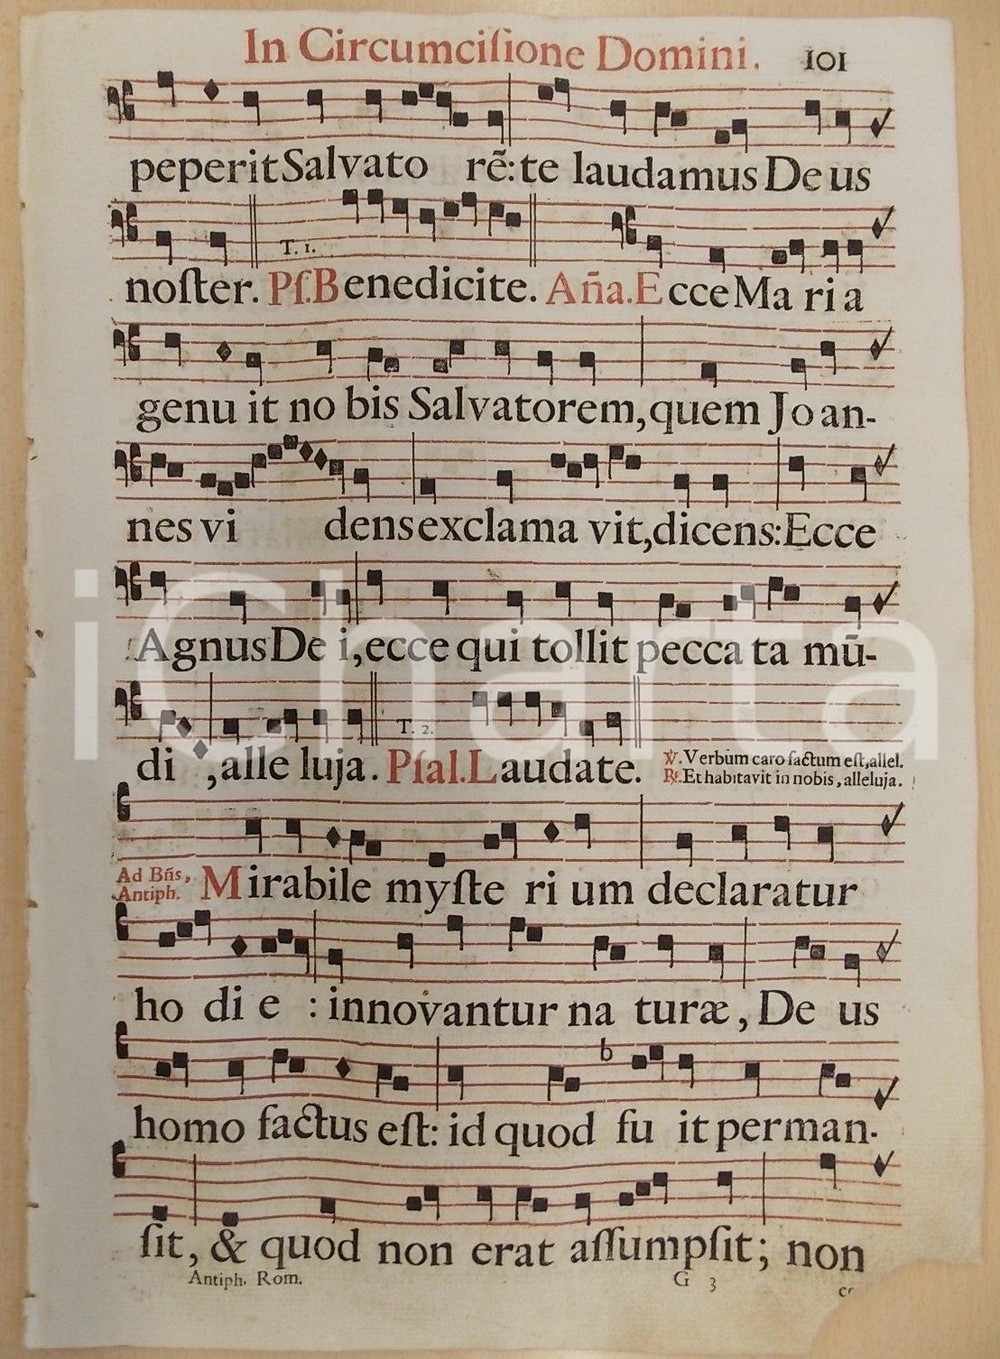 In Circumciſione Domini. 101
peperit Salvato rẽ: te laudamus De us
T. 1.
noſter. Pſ. Benedicite. Aña. Ecce Ma ri a
genu it no bis Salvatorem, quem Jo an-
nes vi dens exclama vit, dicens: Ecce
Agnus De i, ecce qui tollit pecca ta mũ-
T. 2.
di , alle luja. Pſal. Laudate. ℣. Verbum caro factum eſt, allel.
℟. Et habitavit in nobis, alleluja.
Ad Bñs, Antiph. Mirabile myſte ri um declaratur
ho di e : innovantur na turæ, De us
b
homo factus eſt: id quod fu it perman-
ſit, & quod non erat aſſumpſit; non
Antiph. Rom. G 3
iCharta